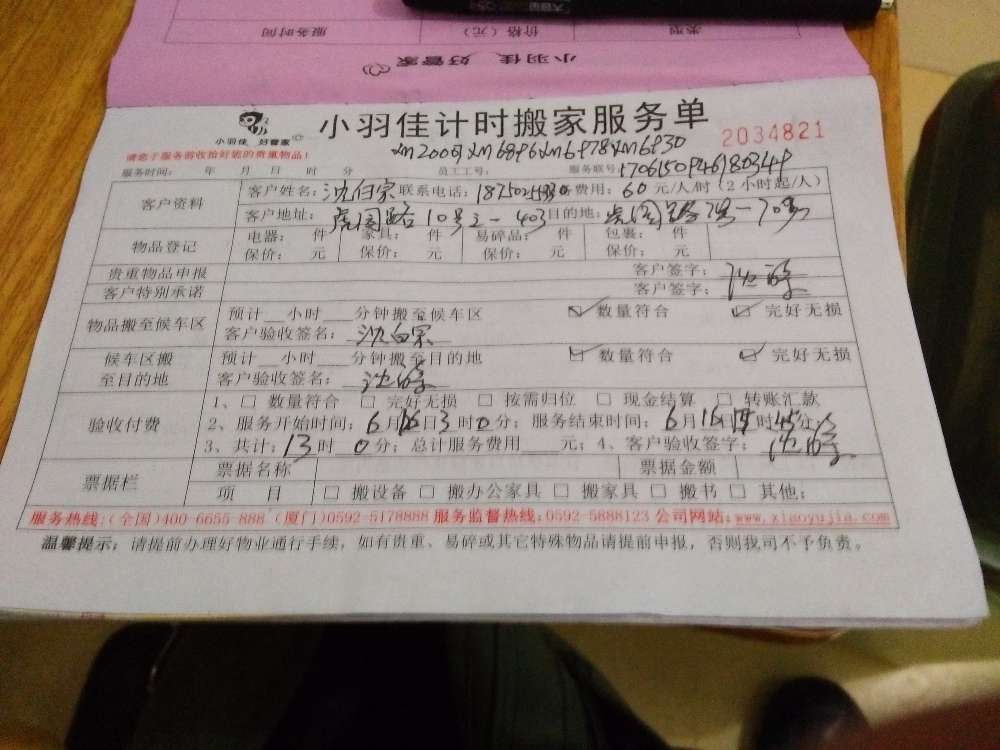 类型 价格(元) 服务时间
小羽佳 好管家
小羽佳 好管家
小羽佳计时搬家服务单
2034821
请您于服务验收拾好您的贵重物品!
服务时间: 年 月 日 时 分 员工工号: 服务联号:
客户资料
客户姓名: 联系电话: 费用:60元/人/时(2小时起/人)
客户地址:虎园路10号之一403 目的地:
物品登记
电器: 件 家具: 件 易碎品: 件 包裹: 件
保价: 元 保价: 元 保价: 元 保价: 元
贵重物品申报 客户签字:
客户特别承诺 客户签字:
物品搬至候车区
预计__小时___分钟搬至候车区 ☑数量符合 ☑完好无损
客户验收签名:
候车区搬至目的地
预计__小时___分钟搬至目的地 ☑数量符合 ☑完好无损
客户验收签名:
验收付费
1、□ 数量符合 □ 完好无损 □ 按需归位 □ 现金结算 □ 转账汇款
2、服务开始时间:6月16日3时0分;服务结束时间:6月16日 时45分
3、共计:13时0分;总计服务费用___元;4、客户验收签字:
票据栏
票据名称 票据金额
项 目 □ 搬设备 □ 搬办公家具 □ 搬家具 □ 搬书 □ 其他:
服务热线:(全国)400-6655-888 (厦门)0592-5178888 服务监督热线:0592-5888123 公司网站:www.xiaoyujia.com
温馨提示:请提前办理好物业通行手续,如有贵重、易碎或其它特殊物品请提前申报,否则我司不予负责。